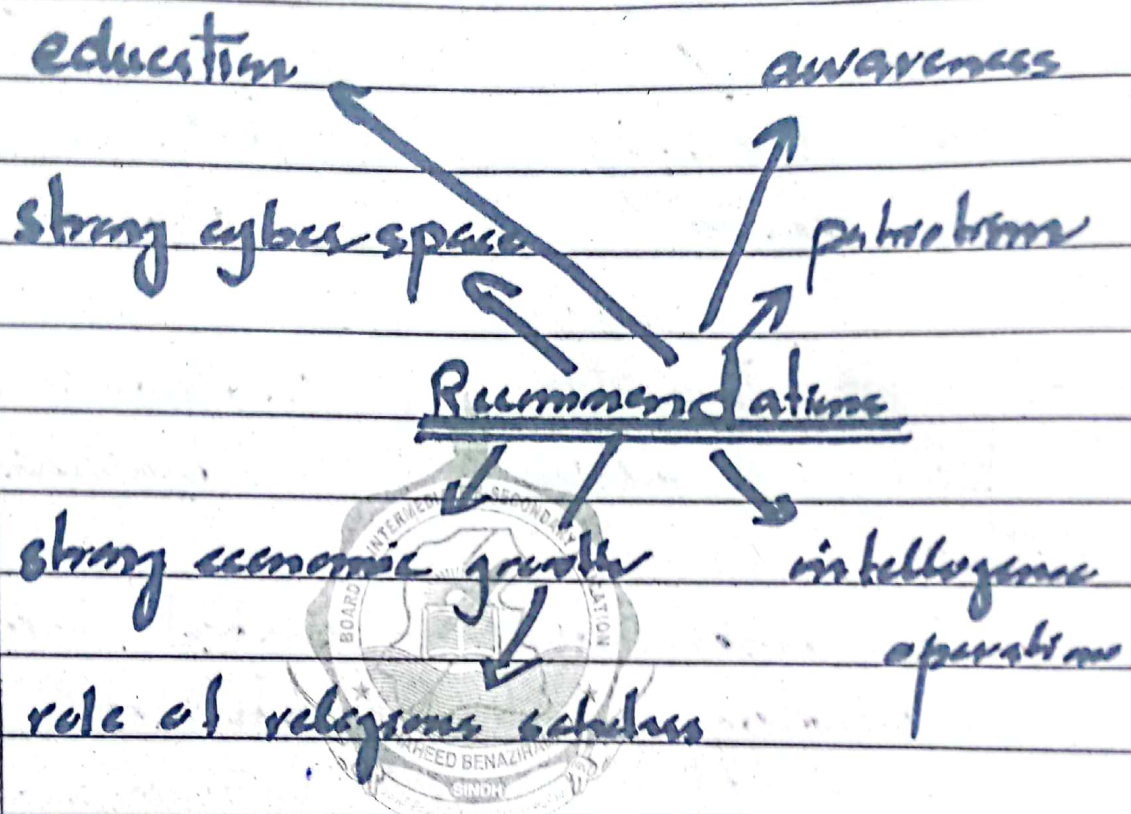 education awareness
strong cyber space patriotism
Recommendations
strong economic growth intelligence
operations
role of religious scholars
BOARD INTERMEDI SECONDARY
SHAHEED BENAZIRA
SINDH